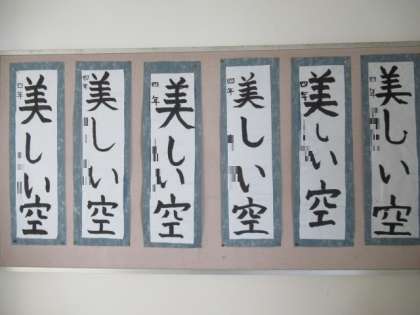 美しい空
四年
美しい空
四年
美しい空
四年
美しい空
四年
美しい空
四年
美しい空
四年